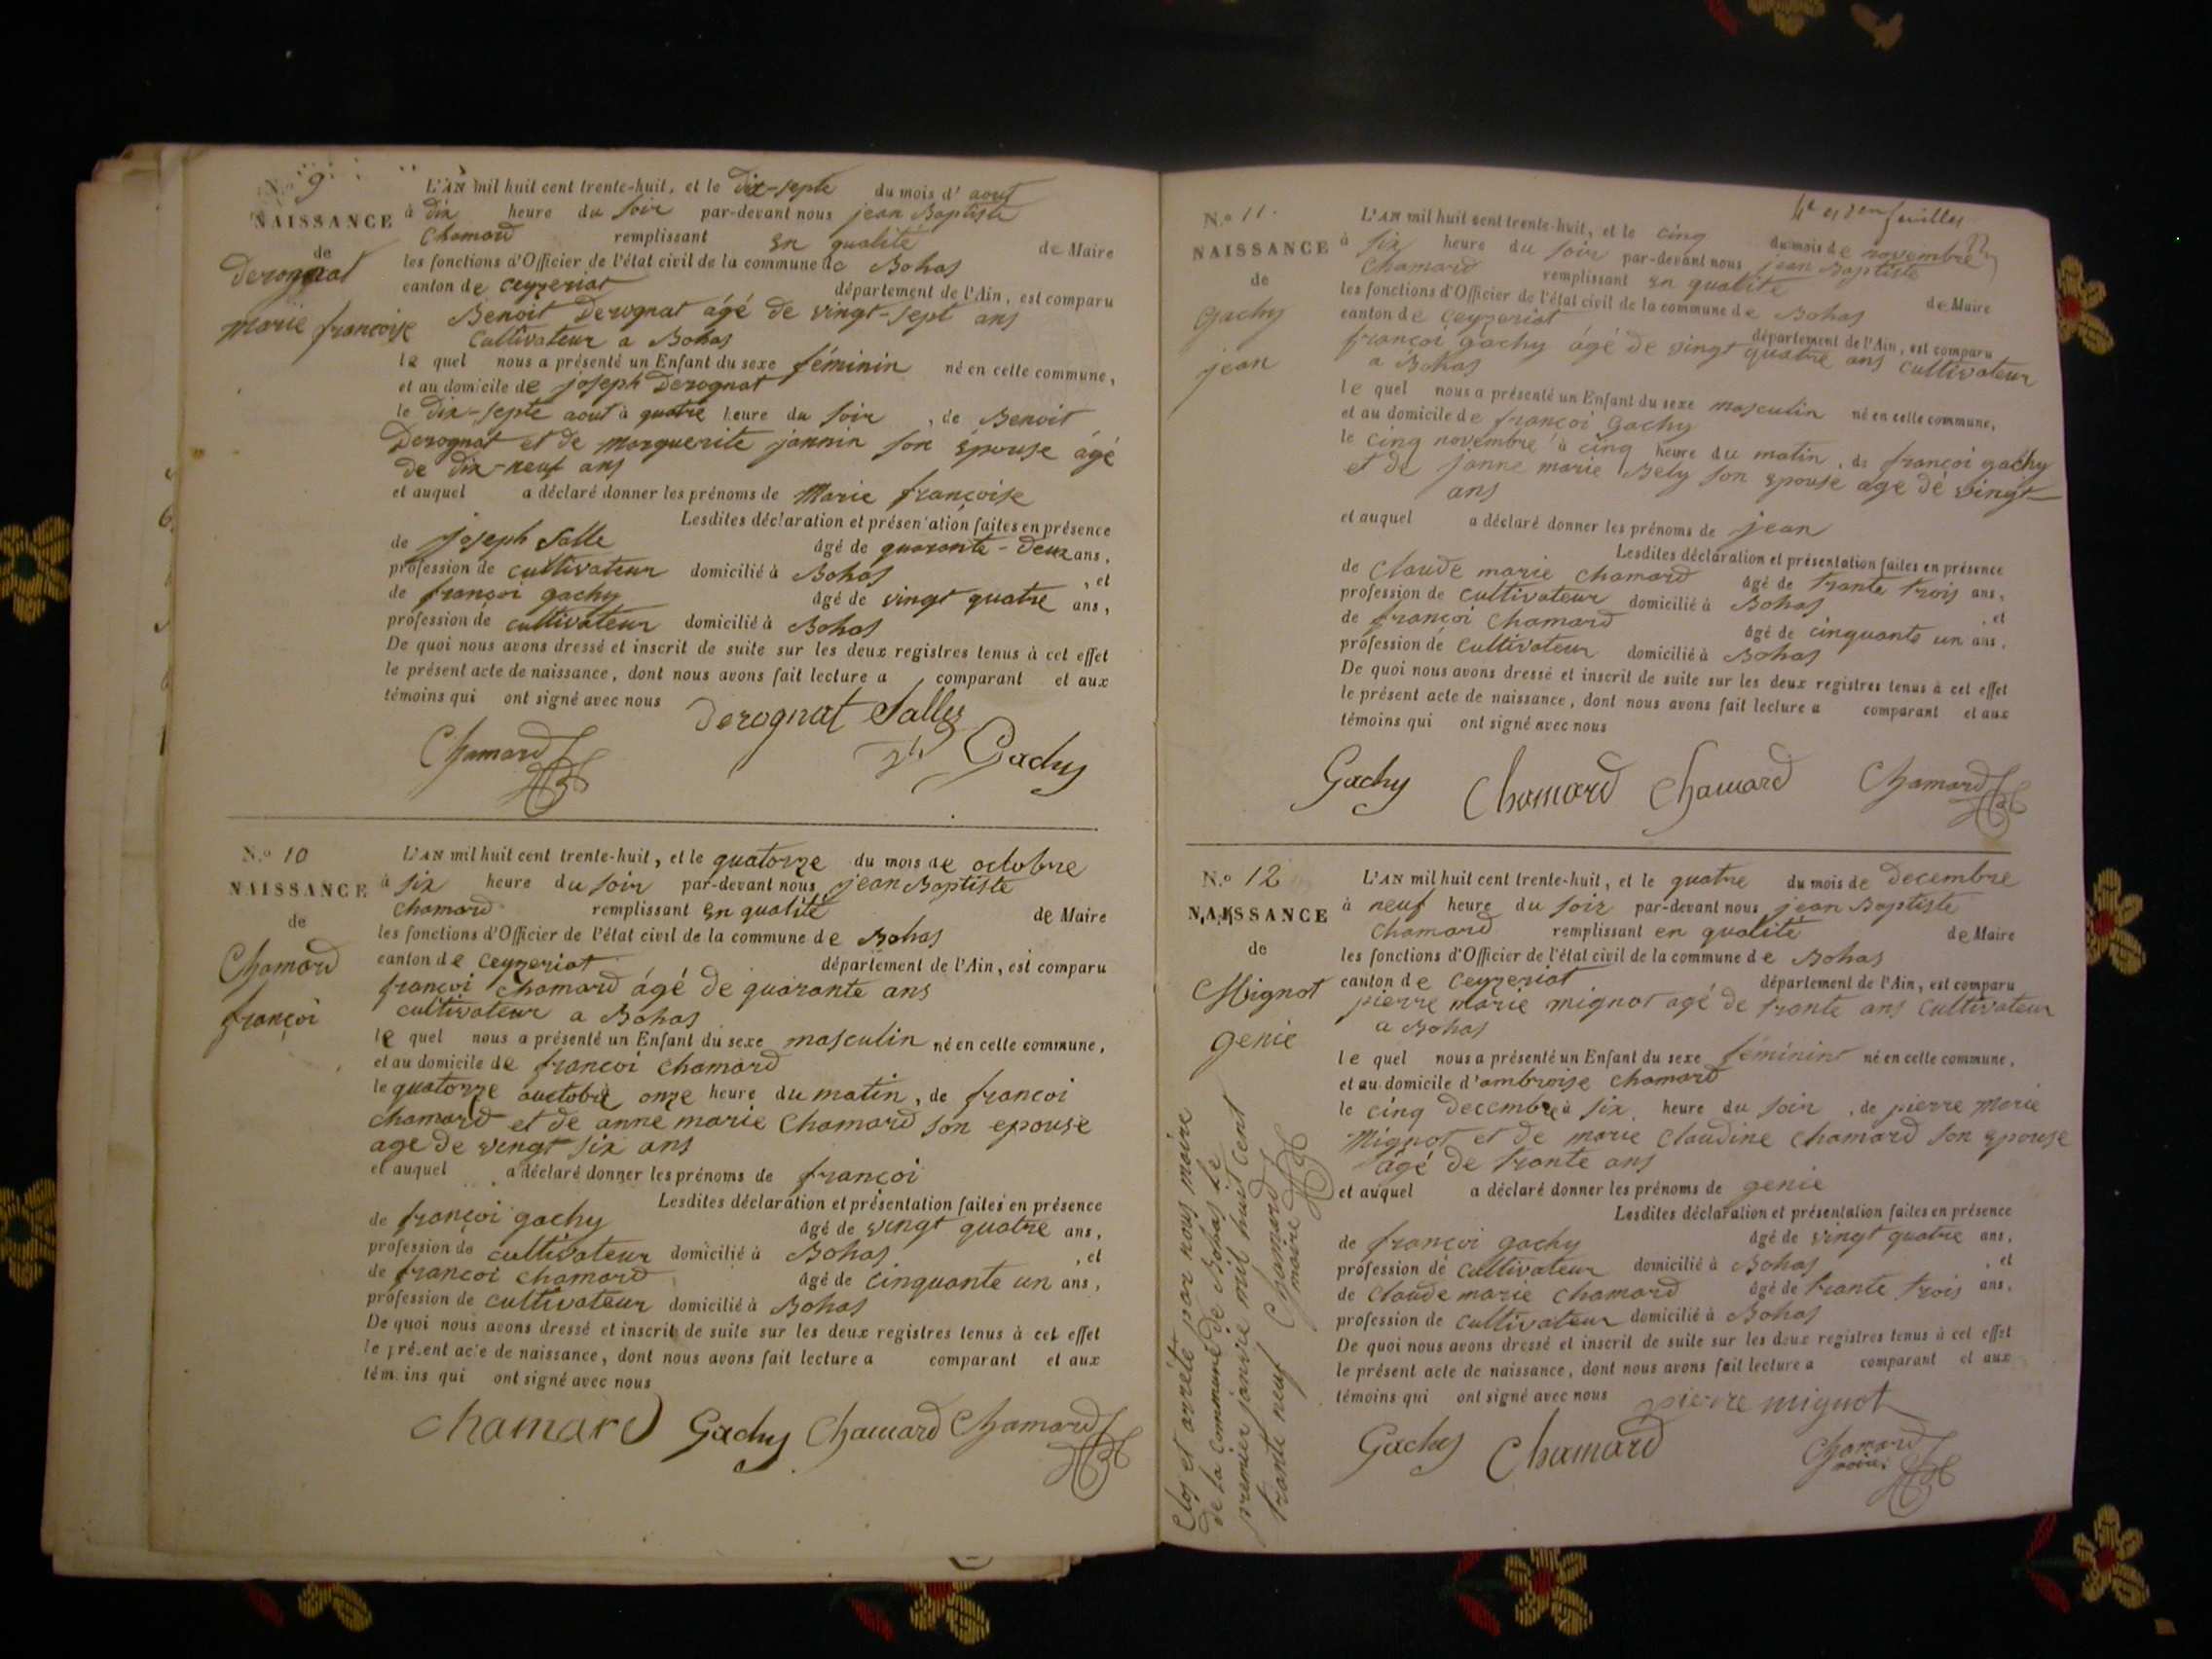 N.o 9
NAISSANCE
de
Derognat
Marie françoise
L'AN mil huit cent trente-huit, et le Dix-septe du mois d' aout
à Dix heure du soir par-devant nous jean Baptiste
Chamard remplissant En qualité de Maire
les fonctions d'Officier de l'état civil de la commune de Bohas
canton de ceyzeriat département de l'Ain, est comparu
Benoit Derognat âgé de vingt-sept ans
Cultivateur a Bohas
le quel nous a présenté un Enfant du sexe féminin né en cette commune,
et au domicile de joseph Derognat
le Dix-septe aout à quatre heure du soir, de Benoit
Derognat et de Marguerite jannin son Epouse âgé
de dix-neuf ans
et auquel a déclaré donner les prénoms de Marie françoise
Lesdites déclaration et présentation faites en présence
de joseph Salle âgé de quarante-deux ans,
profession de cultivateur domicilié à Bohas, et
de françoi gachy âgé de vingt quatre ans,
profession de cultivateur domicilié à Bohas
De quoi nous avons dressé et inscrit de suite sur les deux registres tenus à cet effet
le présent acte de naissance, dont nous avons fait lecture a comparant et aux
témoins qui ont signé avec nous
Derognat Salles
Chamard Gachy
N.o 10
NAISSANCE
de
Chamard
françoi
L'AN mil huit cent trente-huit, et le quatorze du mois de octobre
à six heure du soir par-devant nous jean Baptiste
chamard remplissant En qualité de Maire
les fonctions d'Officier de l'état civil de la commune de Bohas
canton de ceyzeriat département de l'Ain, est comparu
françoi chamard âgé de quarante ans
cultivateur a Bohas
le quel nous a présenté un Enfant du sexe masculin né en cette commune,
et au domicile de françoi chamard
le quatorze onze heure du matin, de françoi
chamard et de anne marie Chamard son epouse
age de vingt six ans
et auquel a déclaré donner les prénoms de françoi
Lesdites déclaration et présentation faites en présence
de françoi gachy âgé de vingt quatre ans,
profession de cultivateur domicilié à Bohas, et
de françoi chamard âgé de cinquante un ans,
profession de cultivateur domicilié à Bohas
De quoi nous avons dressé et inscrit de suite sur les deux registres tenus à cet effet
le présent acte de naissance, dont nous avons fait lecture a comparant et aux
témoins qui ont signé avec nous
chamard Gachy Chamard Chamard
feuilles
N.o 11.
NAISSANCE
de
gachy
jean
L'AN mil huit cent trente-huit, et le cinq du mois de novembre
à six heure du soir par-devant nous jean Baptiste
Chamard remplissant En qualité de Maire
les fonctions d'Officier de l'état civil de la commune de Bohas
canton de ceyzeriat département de l'Ain, est comparu
françoi gachy âgé de vingt quatre ans cultivateur
a Bohas
le quel nous a présenté un Enfant du sexe masculin né en cette commune,
et au domicile de françoi gachy
le cinq novembre à cinq heure du matin, de françoi gachy
et de janne marie Bely son Epouse age de vingt
ans
et auquel a déclaré donner les prénoms de jean
Lesdites déclaration et présentation faites en présence
de claude marie chamard âgé de trante trois ans,
profession de cultivateur domicilié à Bohas, et
de françoi chamard âgé de cinquante un ans,
profession de cultivateur domicilié à Bohas
De quoi nous avons dressé et inscrit de suite sur les deux registres tenus à cet effet
le présent acte de naissance, dont nous avons fait lecture a comparant et aux
témoins qui ont signé avec nous
Gachy Chamard Chamard Chamard
N.o 12
NAISSANCE
de
Mignot
genie
L'AN mil huit cent trente-huit, et le quatre du mois de decembre
à neuf heure du soir par-devant nous jean Baptiste
chamard remplissant en qualité de Maire
les fonctions d'Officier de l'état civil de la commune de Bohas
canton de ceyzeriat département de l'Ain, est comparu
pierre marie mignot agé de trante ans cultivateur
a Bohas
le quel nous a présenté un Enfant du sexe féminin né en cette commune,
et au domicile d'ambroise chamard
le cinq decembre à six heure du soir, de pierre Marie
Mignot et de marie claudine chamard son Epouse
âgé de trante ans
et auquel a déclaré donner les prénoms de genie
Lesdites déclaration et présentation faites en présence
de françoi gachy âgé de vingt quatre ans,
profession de cultivateur domicilié à Bohas, et
de claude marie chamard âgé de trante trois ans,
profession de cultivateur domicilié à Bohas
De quoi nous avons dressé et inscrit de suite sur les deux registres tenus à cet effet
le présent acte de naissance, dont nous avons fait lecture a comparant et aux
témoins qui ont signé avec nous
pierre mignot
Gachy Chamard Chamard
maire
Clos et arrété par nous maire
de la commune de Bohas le
premier janvier mil huit cent
trante neuf Chamard
maire